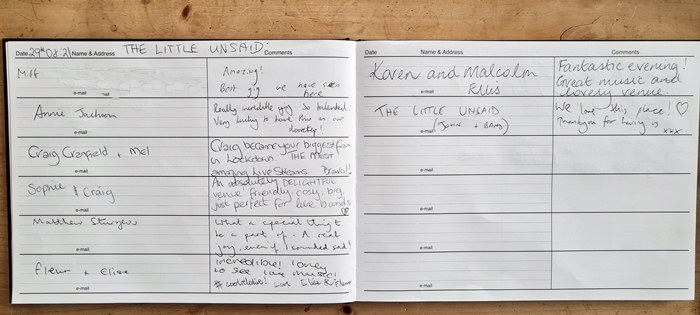 Date 29th 08.21 Name & Address THE LITTLE UNSAID. Comments
Miff
e-mail
Amazing!
Best gig we have seen
here
Annie Jackson
e-mail
Really incredible gig. So talented.
Very lucky to have this on our
doorstep!
Craig Cranfield + Mel
e-mail
Craig became your biggest fan
in Lockdown THE MOST
amazing Live Streams Bravo!!
Sophie & Craig
e-mail
An absolutely DELIGHTFUL
venue! friendly, cosy, big,
just perfect for live bands
Matthew
e-mail
What a special thing to
be a part of. A real
joy, even if I sounded sad!
Fleur + Elise
e-mail
Incredible!
to see live music!
Love Elise & Fleur
Date Name & Address Comments
Karen and Malcolm
Ellis
e-mail
Fantastic evening!
Great music and
lovely venue.
THE LITTLE UNSAID
(JOHN + BAND)
e-mail
We love this place! ♡
Thankyou for having us
xxx
e-mail
e-mail
e-mail
e-mail